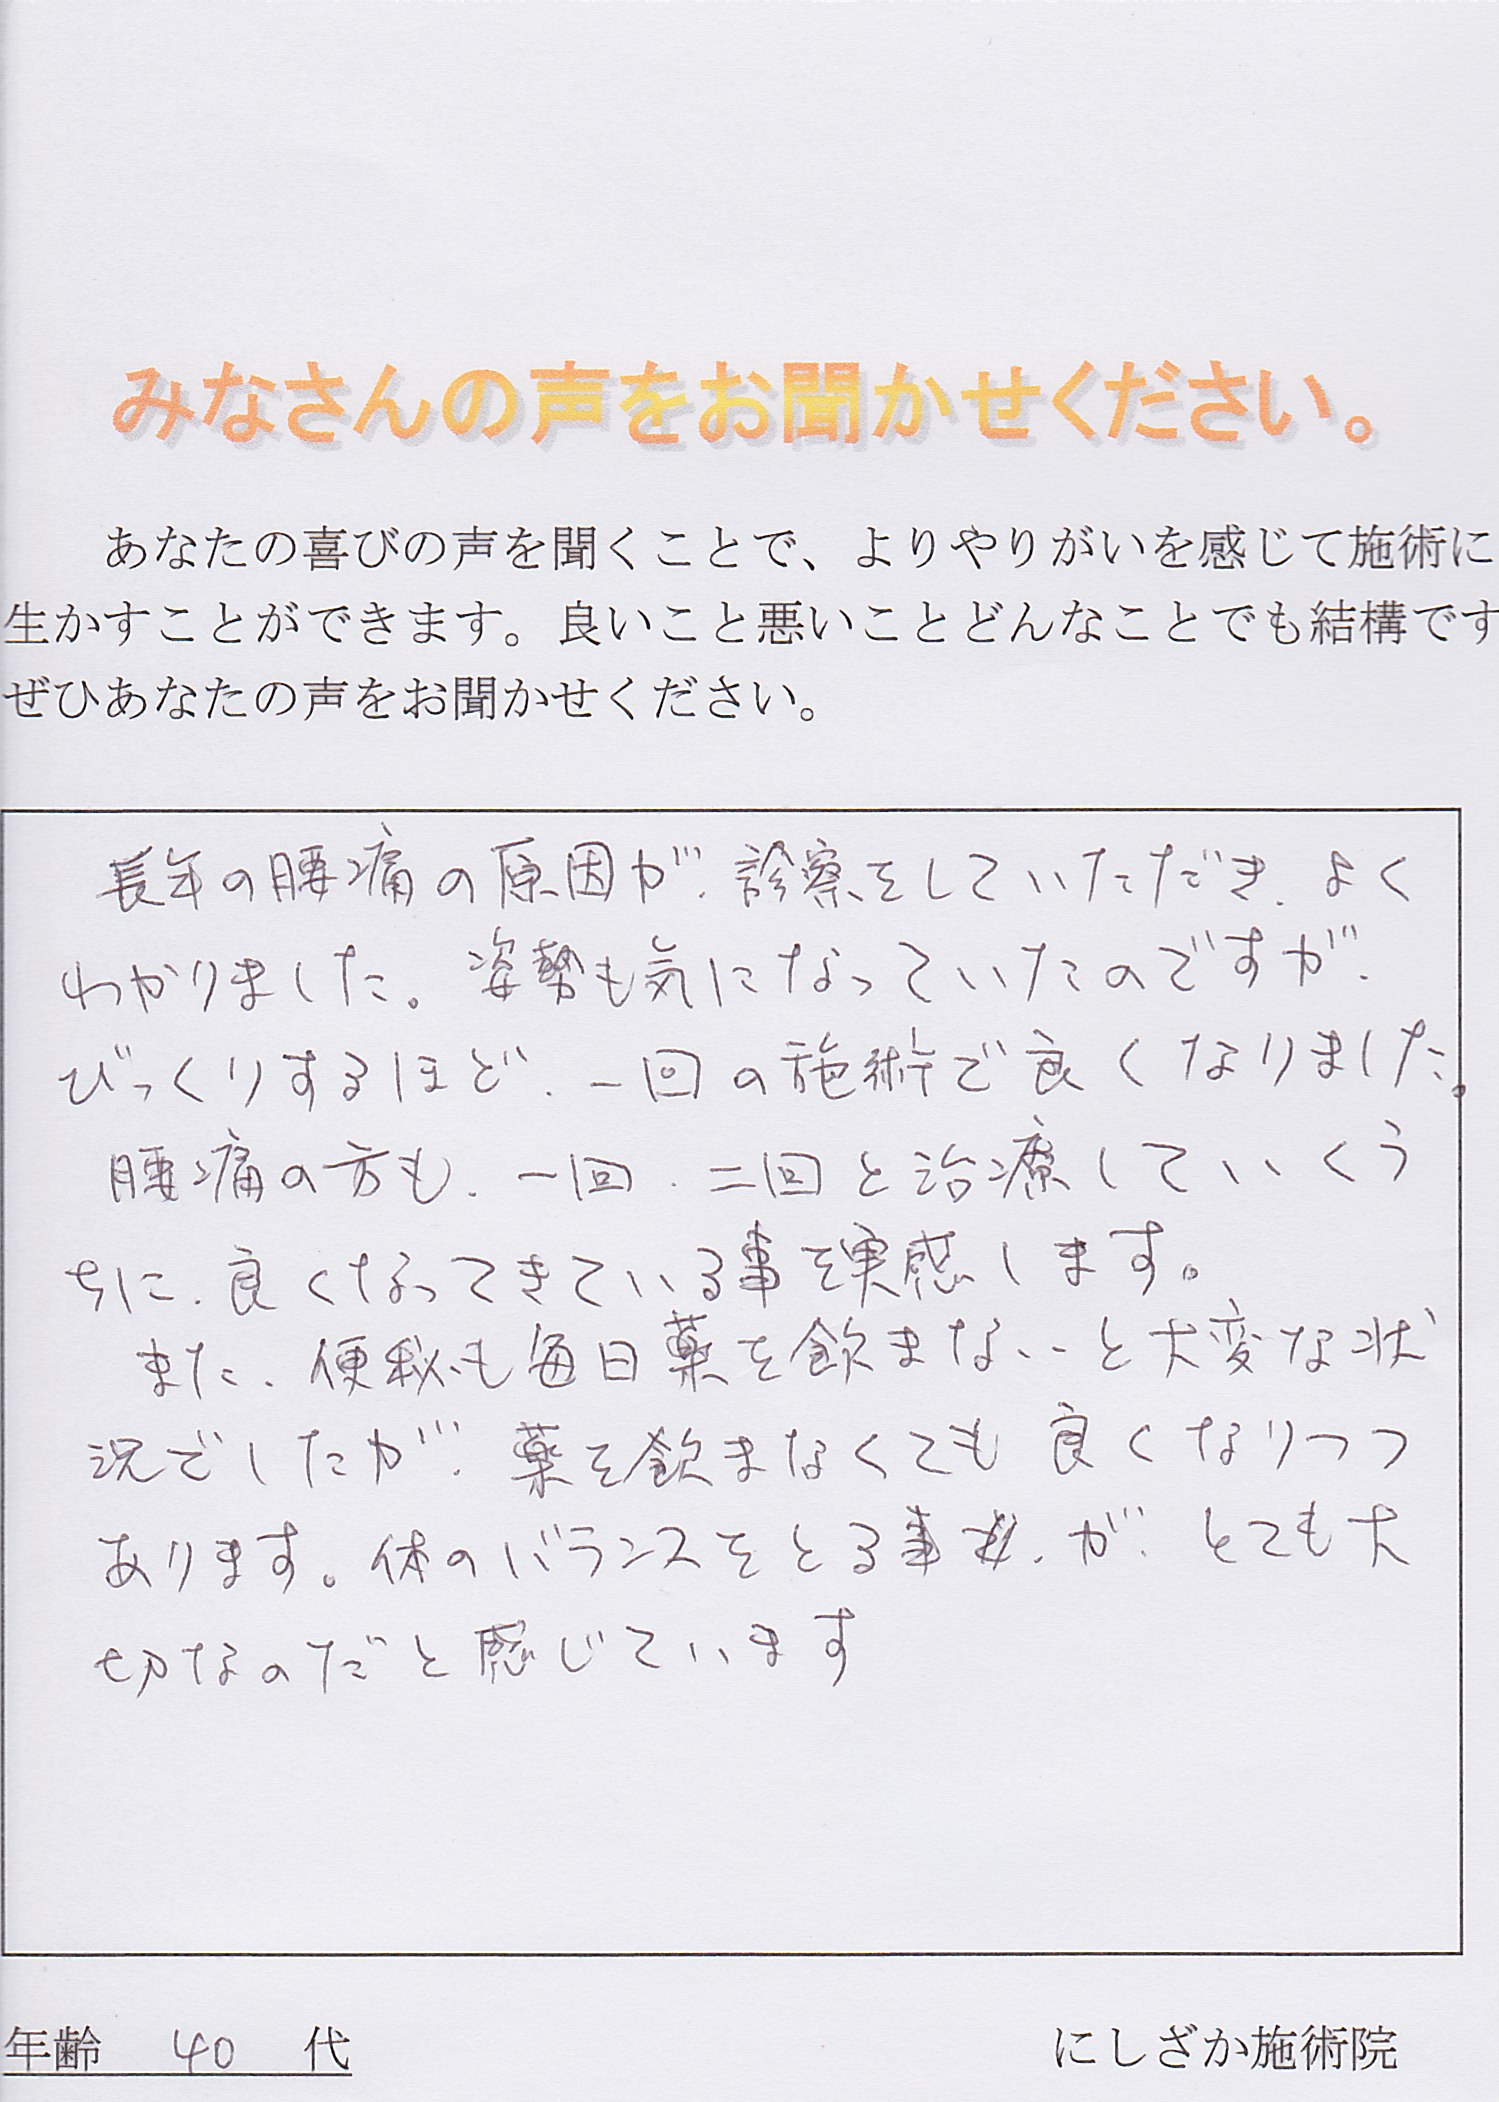 みなさんの声をお聞かせください。
あなたの喜びの声を聞くことで、よりやりがいを感じて施術に
生かすことができます。良いこと悪いことどんなことでも結構です
ぜひあなたの声をお聞かせください。
長年の腰痛の原因が、診察をしていただき、よく
わかりました。姿勢も気になっていたのですが、
びっくりするほど、一回の施術で良くなりました。
腰痛の方も、一回、二回と治療していくう
ちに、良くなってきている事を実感します。
また、便秘も毎日薬を飲まないと大変な状
況でしたが、薬を飲まなくても良くなりつつ
あります。体のバランスをとる事が、とても大
切なのだと感じています
年齢 40 代
にしざか施術院